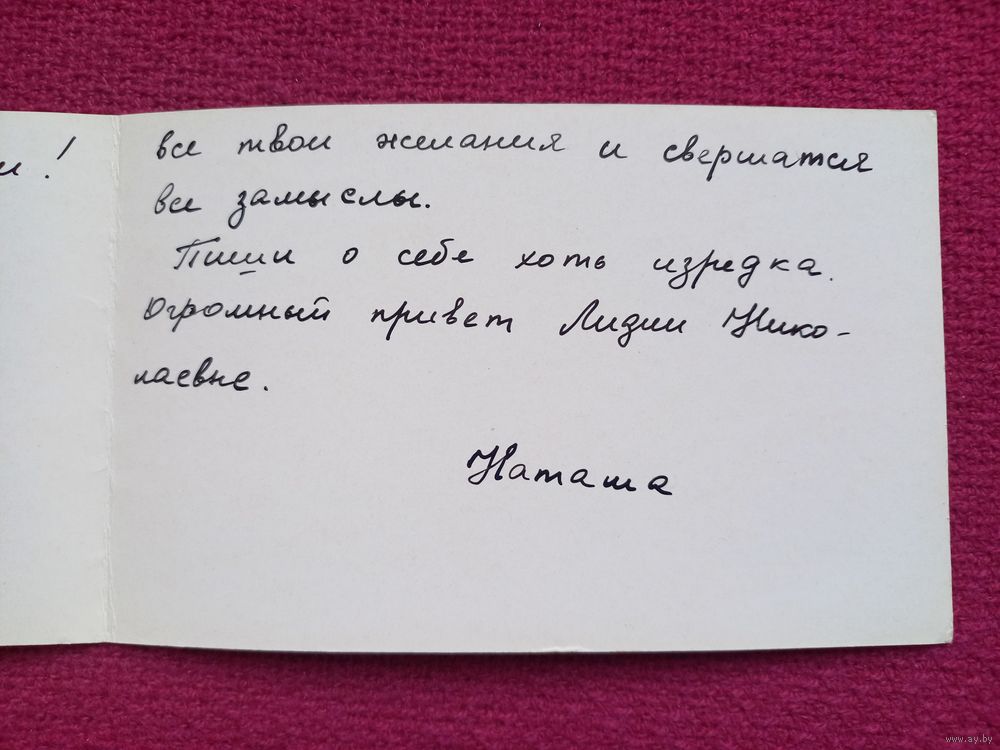 и!
все твои желания и свершатся
все замыслы.
Пиши о себе хоть изредка.
Огромный привет Лидии Нико-
лаевне.
Наташа
www.ay.by